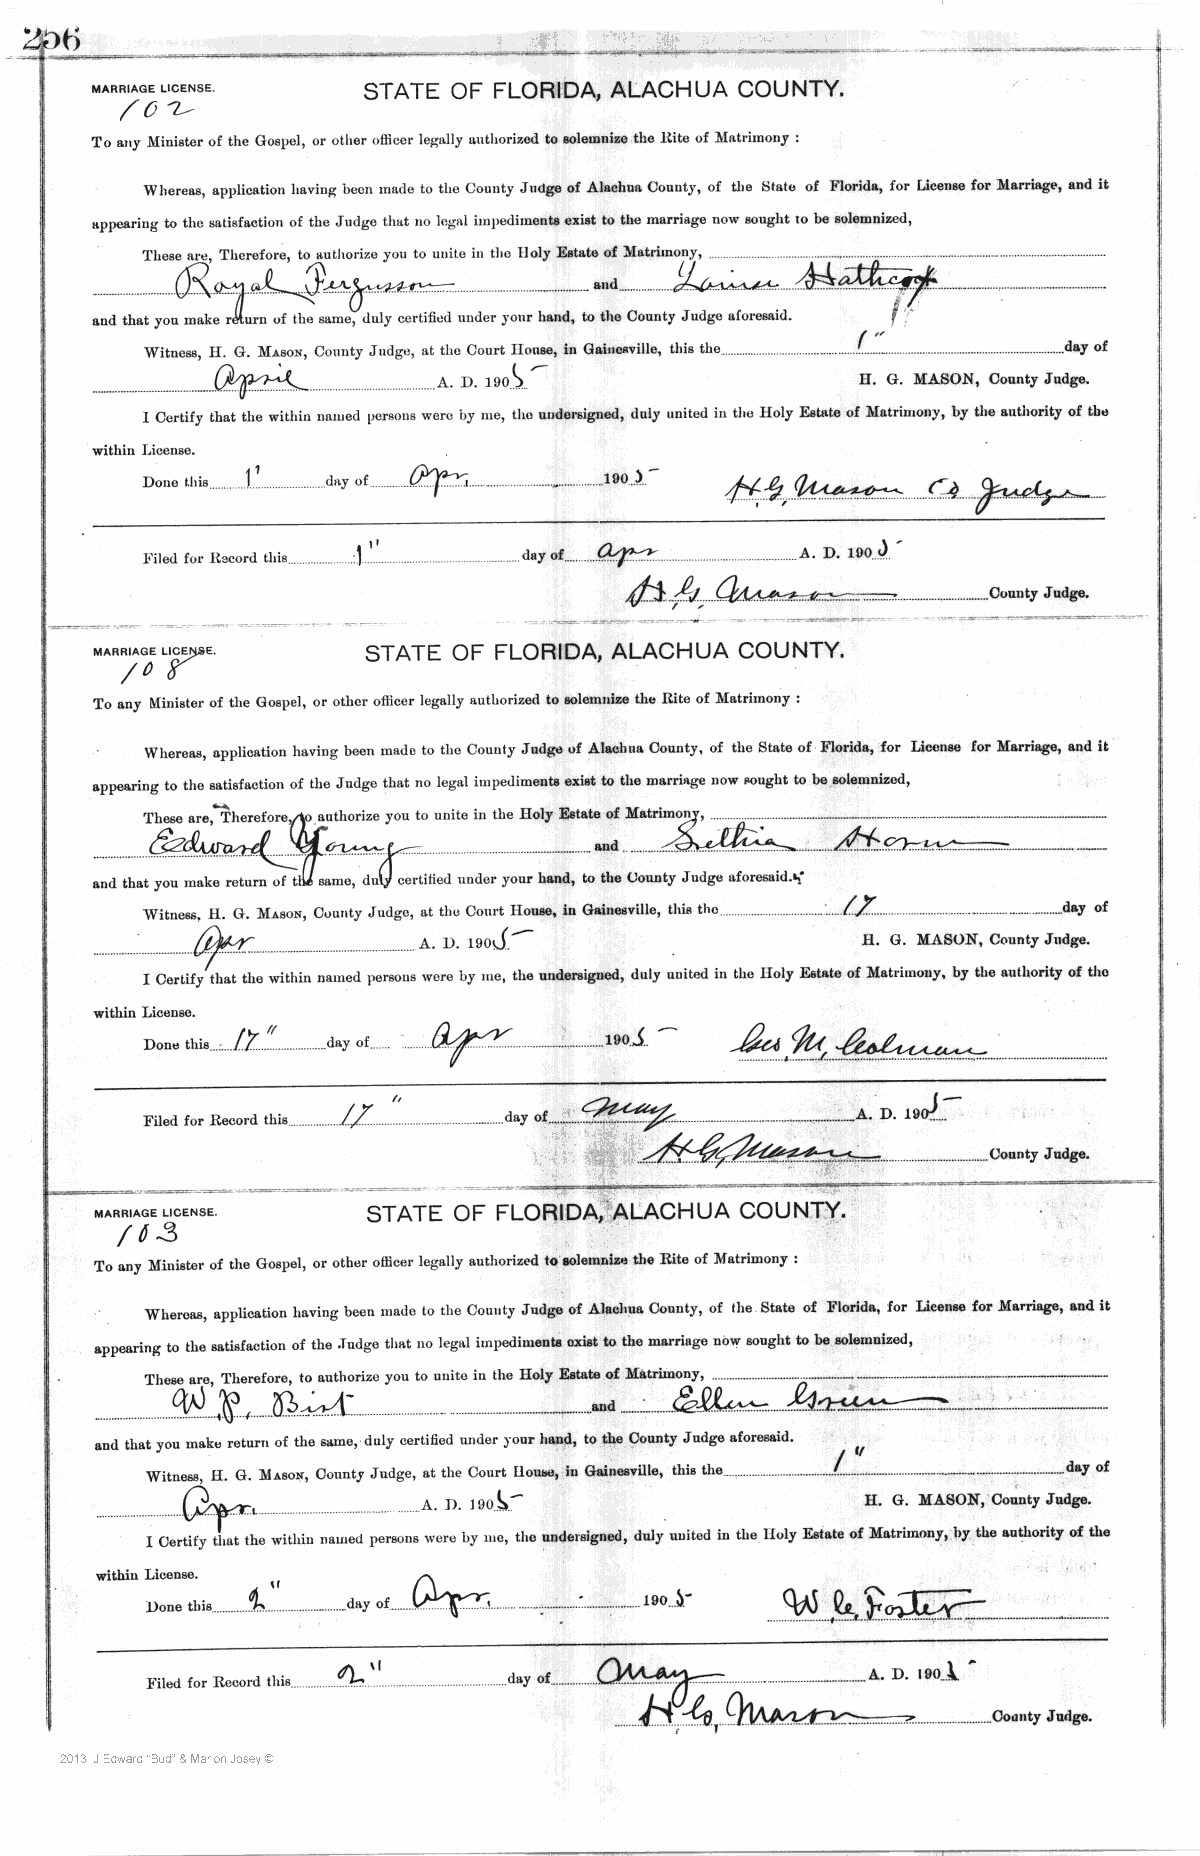 256
MARRIAGE LICENSE. STATE OF FLORIDA, ALACHUA COUNTY.
102
To any Minister of the Gospel, or other officer legally authorized to solemnize the Rite of Matrimony :
Whereas, application having been made to the County Judge of Alachua County, of the State of Florida, for License for Marriage, and it
appearing to the satisfaction of the Judge that no legal impediments exist to the marriage now sought to be solemnized,
These are, Therefore, to authorize you to unite in the Holy Estate of Matrimony,
Royal Fergusson and Louise Hathcock
and that you make return of the same, duly certified under your hand, to the County Judge aforesaid.
Witness, H. G. MASON, County Judge, at the Court House, in Gainesville, this the 1" day of
April A. D. 1905 H. G. MASON, County Judge.
I Certify that the within named persons were by me, the undersigned, duly united in the Holy Estate of Matrimony, by the authority of the
within License.
Done this 1" day of Apr. 1905 H. G. Mason Co Judge
Filed for Record this 1" day of Apr A. D. 1905
H. G. Mason County Judge.
MARRIAGE LICENSE. STATE OF FLORIDA, ALACHUA COUNTY.
108
To any Minister of the Gospel, or other officer legally authorized to solemnize the Rite of Matrimony :
Whereas, application having been made to the County Judge of Alachua County, of the State of Florida, for License for Marriage, and it
appearing to the satisfaction of the Judge that no legal impediments exist to the marriage now sought to be solemnized,
These are, Therefore, to authorize you to unite in the Holy Estate of Matrimony,
Edward Young and
and that you make return of the same, duly certified under your hand, to the County Judge aforesaid.
Witness, H. G. MASON, County Judge, at the Court House, in Gainesville, this the 17 day of
Apr A. D. 1905 H. G. MASON, County Judge.
I Certify that the within named persons were by me, the undersigned, duly united in the Holy Estate of Matrimony, by the authority of the
within License.
Done this 17" day of Apr 1905 Geo. M. Colman
Filed for Record this 17" day of May A. D. 1905
H. G. Mason County Judge.
MARRIAGE LICENSE. STATE OF FLORIDA, ALACHUA COUNTY.
103
To any Minister of the Gospel, or other officer legally authorized to solemnize the Rite of Matrimony :
Whereas, application having been made to the County Judge of Alachua County, of the State of Florida, for License for Marriage, and it
appearing to the satisfaction of the Judge that no legal impediments exist to the marriage now sought to be solemnized,
These are, Therefore, to authorize you to unite in the Holy Estate of Matrimony,
W. P. and Ellen Green
and that you make return of the same, duly certified under your hand, to the County Judge aforesaid.
Witness, H. G. MASON, County Judge, at the Court House, in Gainesville, this the 1" day of
Apr. A. D. 1905 H. G. MASON, County Judge.
I Certify that the within named persons were by me, the undersigned, duly united in the Holy Estate of Matrimony, by the authority of the
within License.
Done this 2" day of Apr. 1905 W. C. Foster
Filed for Record this 2" day of May A. D. 1905
H. G. Mason County Judge.
2013 J Edward "Bud" & Marion Josey ©